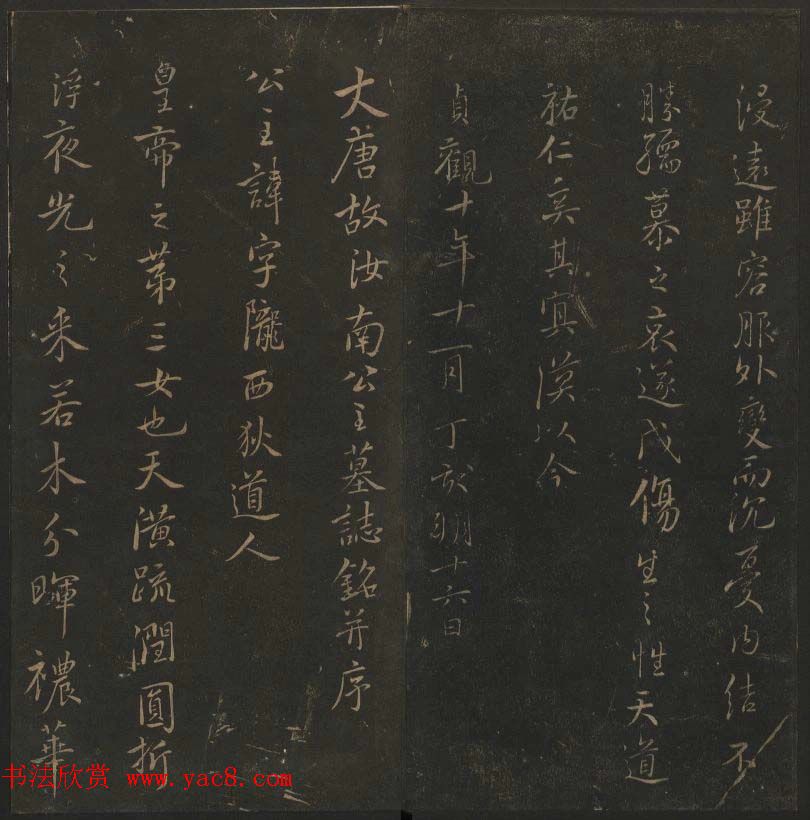 浸遠雖容服外變而沉憂内結不
勝孺慕之哀遂成傷生之性天道
祐仁奚其冥漠以今
貞觀十年十一月丁亥朔十六日
大唐故汝南公主墓誌銘并序
公主諱字隴西狄道人
皇帝之第三女也天潢疏潤圓折
浮夜光之采若木分暉襛華
书法欣赏 www.yac8.com